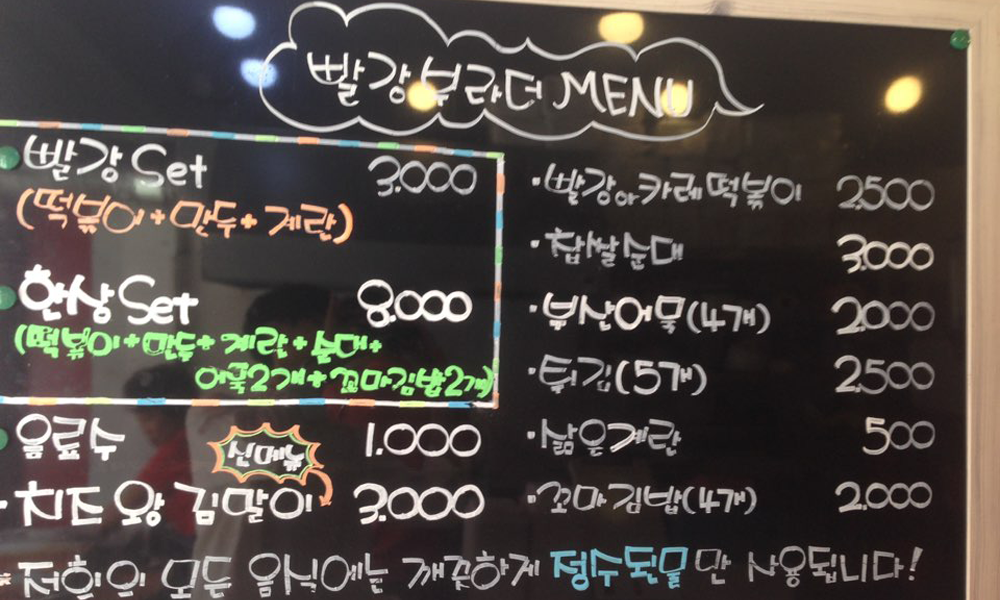 빨강부라더 MENU
빨강 Set 3.000
(떡볶이+만두+계란)
한상 Set 8.000
(떡볶이+만두+계란+순대+
어묵2개+꼬마김밥2개)
음료수 1.000
신메뉴
·치즈 왕 김말이 3.000
·빨강아카레떡볶이 2.500
·찹쌀순대 3.000
·부산어묵(4개) 2.000
·튀김(5개) 2.500
·삶은계란 500
·꼬마김밥(4개) 2.000
저희의 모든 음식에는 깨끗하게 정수된물만 사용됩니다!